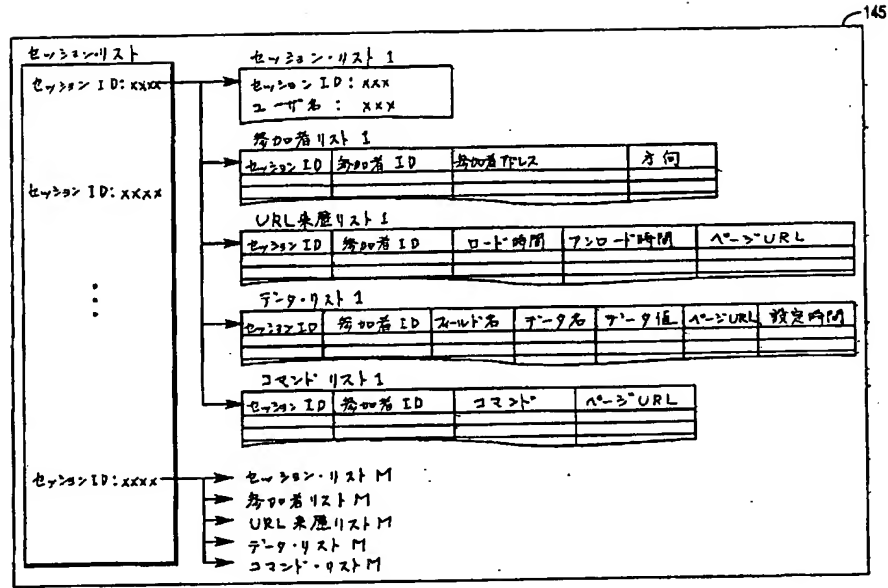 145
セッション・リスト
セッション ID:xxxx
セッション ID:xxxx
セッション ID:xxxx
セッション・リスト 1
セッション ID:xxx
ユーザ名 : xxx
参加者リスト 1
セッション ID 参加者 ID 参加者アドレス 方向
URL来歴リスト 1
セッション ID 参加者 ID ロード時間 アンロード時間 ページURL
データ・リスト 1
セッション ID 参加者 ID フィールド名 データ名 データ値 ページURL 設定時間
コマンド リスト 1
セッション ID 参加者 ID コマンド ページURL
セッション・リスト M
参加者リスト M
URL来歴リスト M
データ・リスト M
コマンド・リスト M